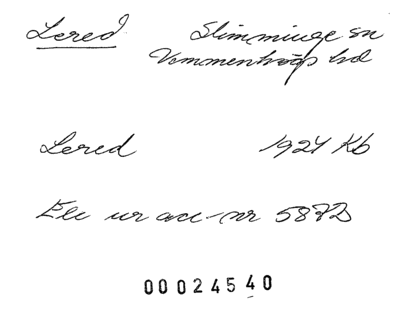 Lered Slimminge sn
Vemmenhögs hd
Lered 1924 Kb
Ele ur acc-nr 5872
00024540